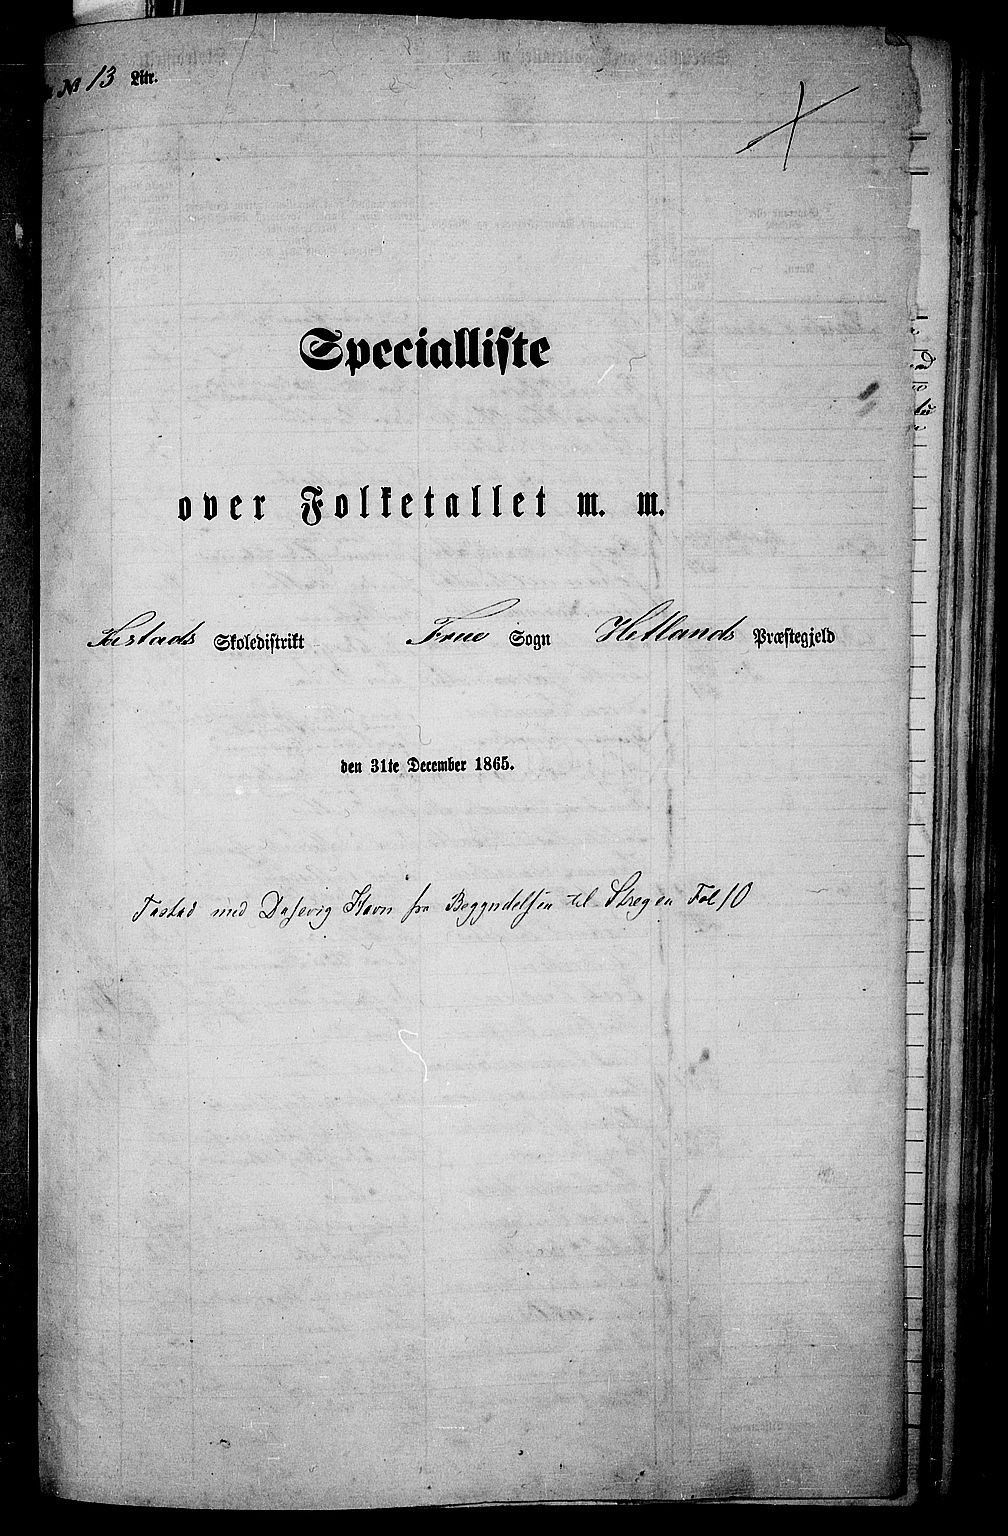 № 13 Litr.
Specialliste
over Folketallet m. m.
Tastads Skoledistrikt Frue Sogn Hetlands Præstegjeld
den 31te December 1865.
Tastad med Dusevig Havn fra Begyndelsen til Stregen Fol 10